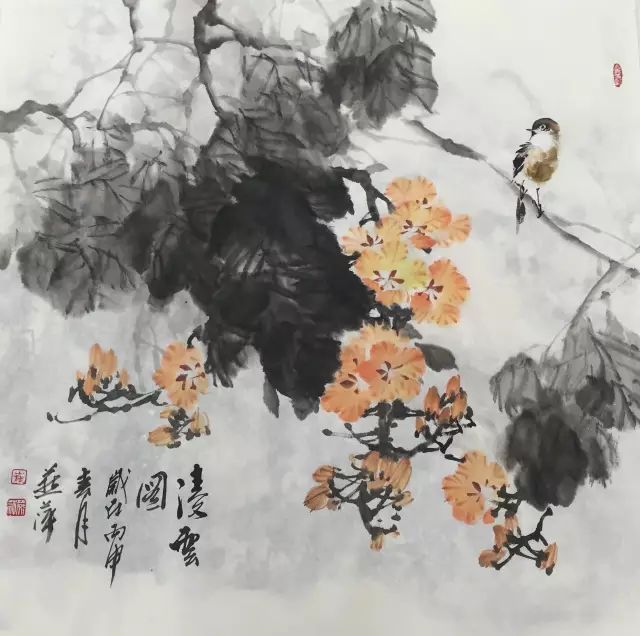 凌雲
圖
歲次丙申
春月
萍